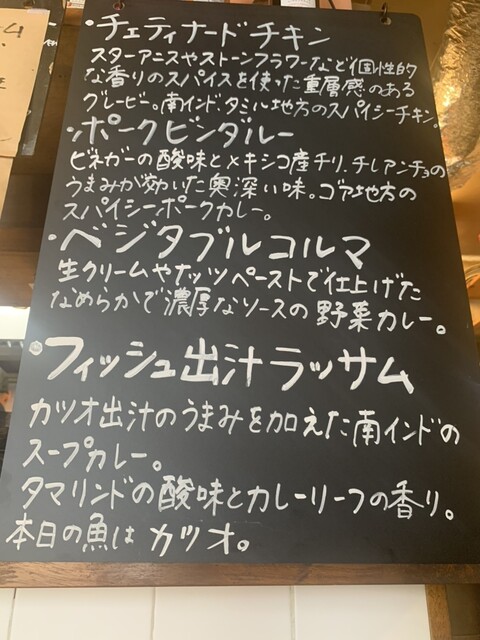 ・チェティナードチキン
スターアニスやストーンフラワーなど個性的
な香りのスパイスを使った重層感のある
グレービー。南インド、タミル地方のスパイシーチキン。
・ポークビンダルー
ビネガーの酸味とメキシコ産チリ、チレアンチョの
うまみが効いた奥深い味。ゴア地方の
スパイシーポークカレー。
・ベジタブルコルマ
生クリームやナッツペーストで仕上げた
なめらかで濃厚なソースの野菜カレー。
・フィッシュ出汁ラッサム
カツオ出汁のうまみを加えた南インドの
スープカレー。
タマリンドの酸味とカレーリーフの香り。
本日の魚は カツオ。